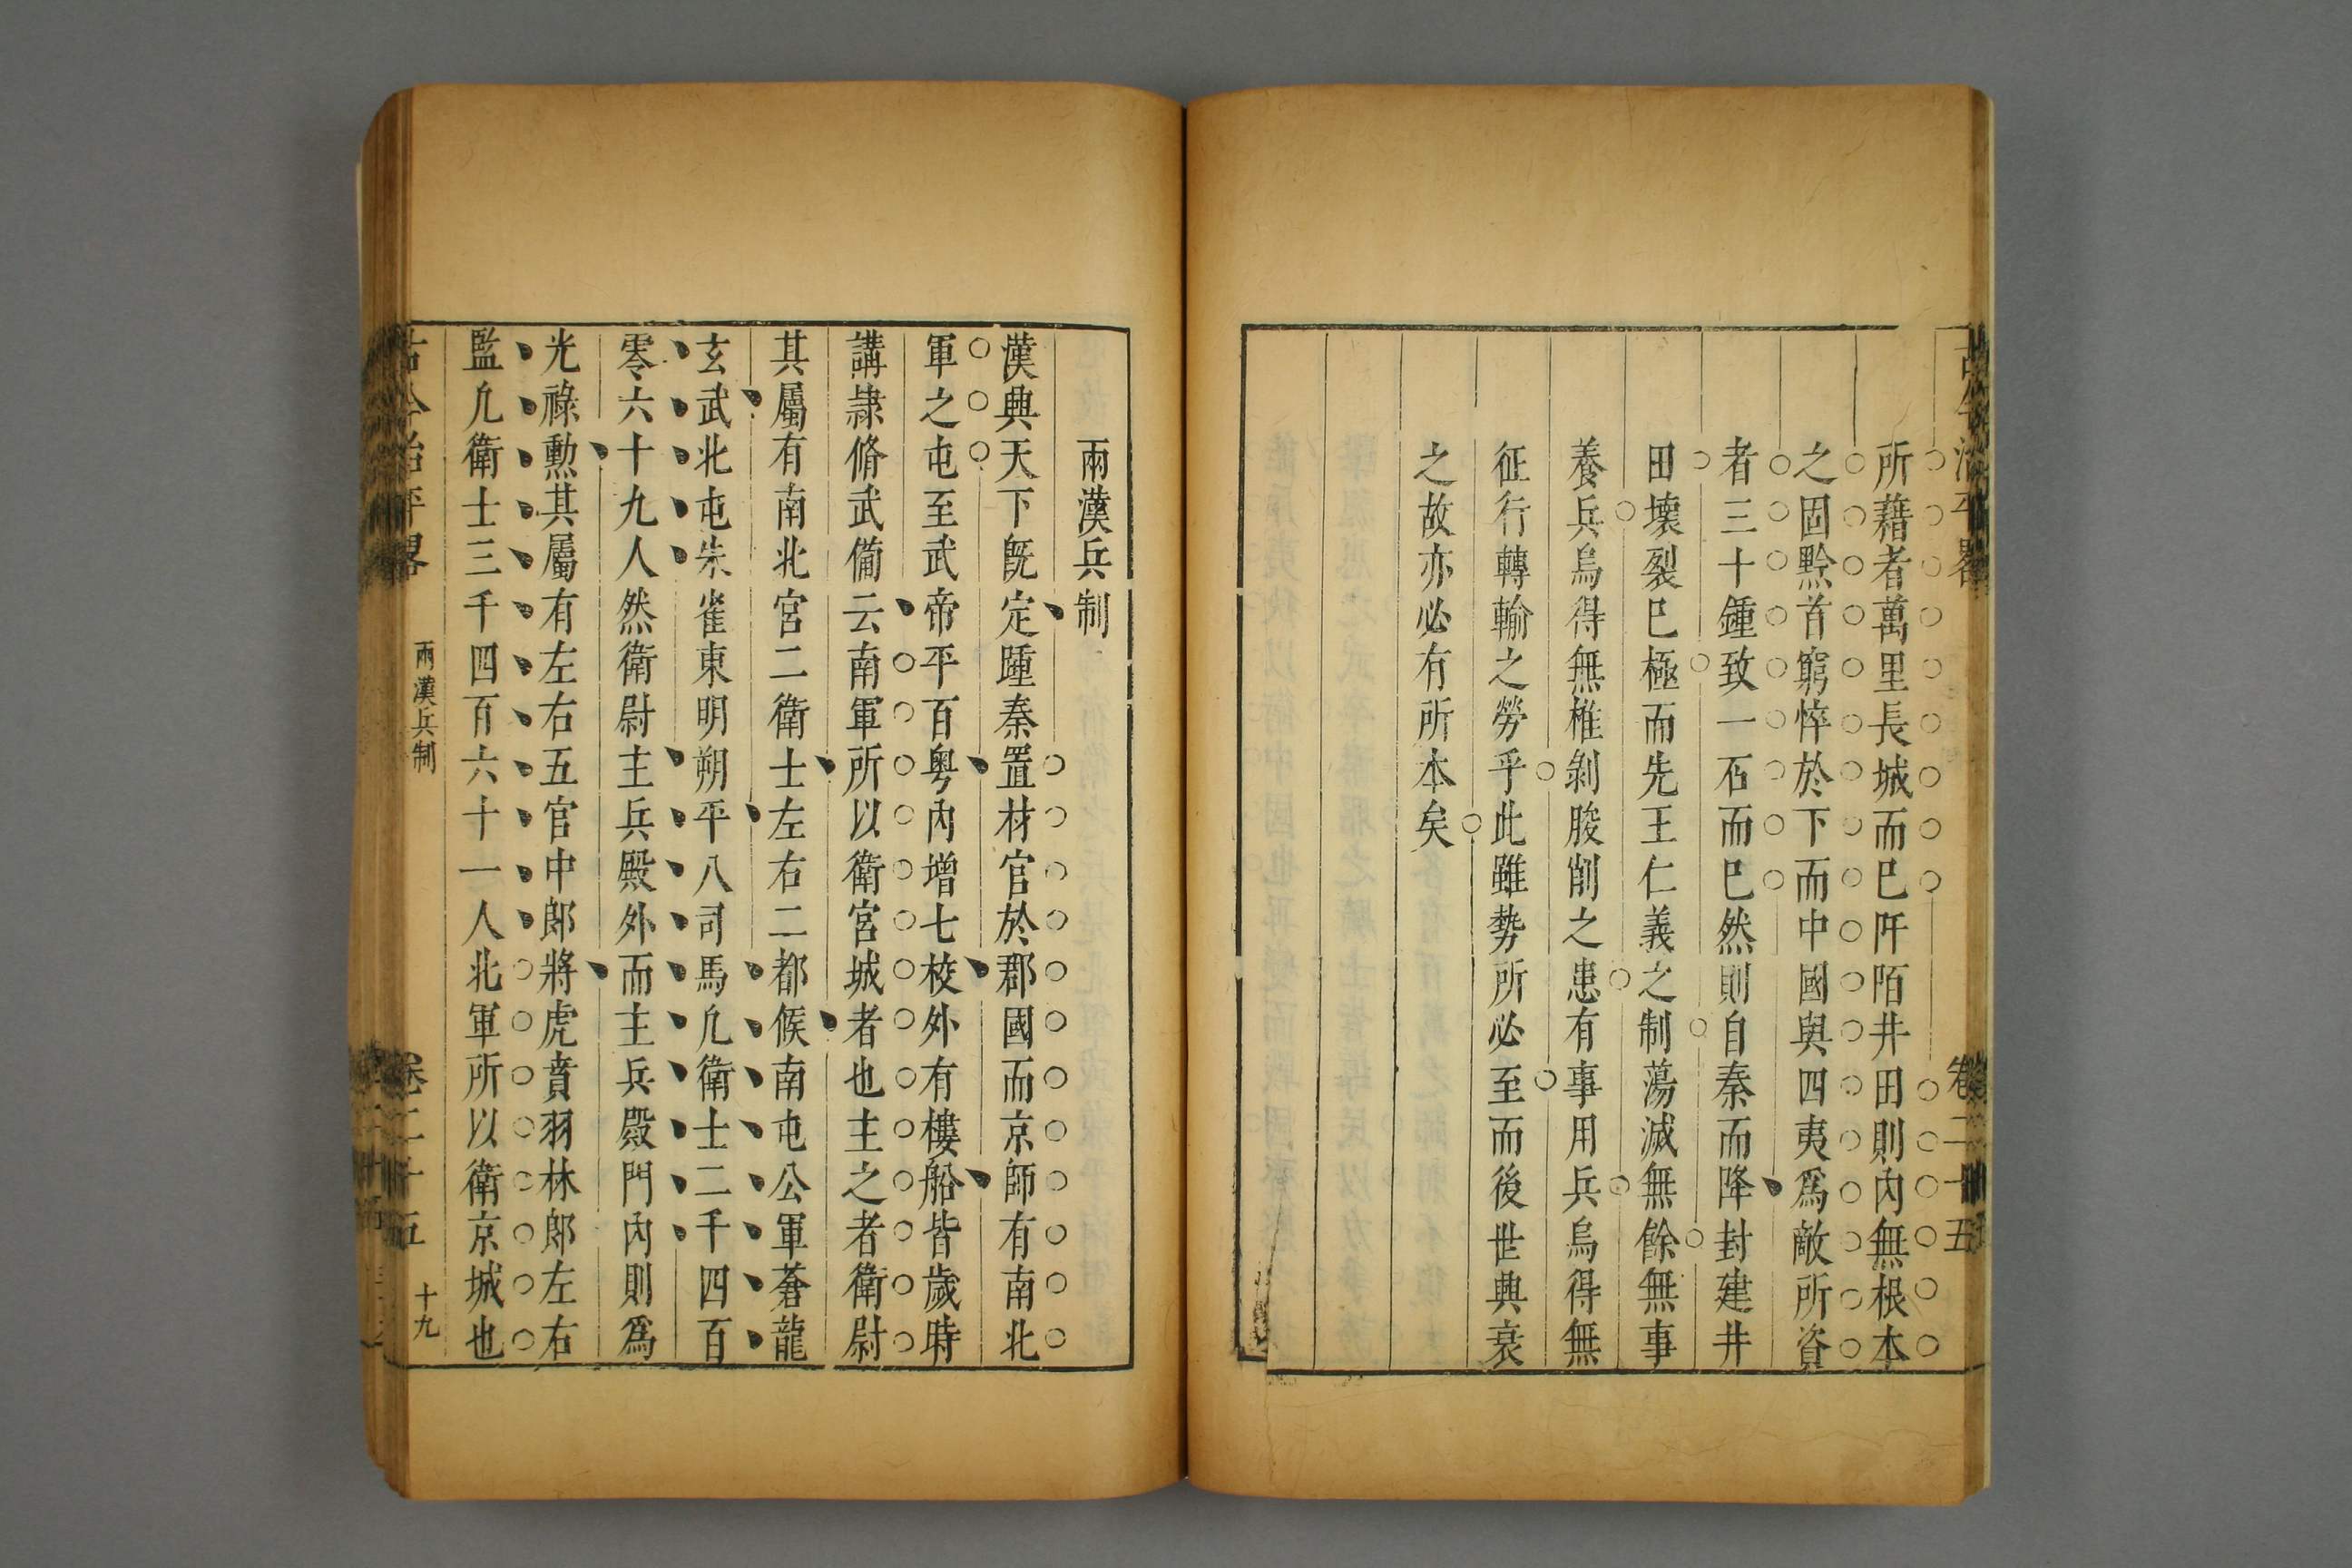 古今治平畧
卷二十五
所藉者萬里長城而已阡陌井田則內無根本
之固黔首窮悴於下而中國與四夷爲敵所資
者三十鍾致一石而已然則自秦而降封建井
田壞裂已極而先王仁義之制蕩滅無餘無事
養兵烏得無椎剝朘削之患有事用兵烏得無
征行轉輸之勞乎此雖勢所必至而後世興衰
之故亦必有所本矣
兩漢兵制
漢興天下旣定踵秦置材官於郡國而京師有南北
軍之屯至武帝平百粵內增七校外有樓船皆歲時
講隷脩武備云南軍所以衛宮城者也主之者衛尉
其屬有南北宮二衛士左右二都候南屯公軍蒼龍
玄武北屯朱雀東明朔平八司馬凢衛士二千四百
零六十九人然衛尉主兵殿外而主兵殿門內則爲
光祿勲其屬有左右五官中郎將虎賁羽林郎左右
監凢衛士三千四百六十一人北軍所以衛京城也
古今治平畧
兩漢兵制
卷二十五
十九